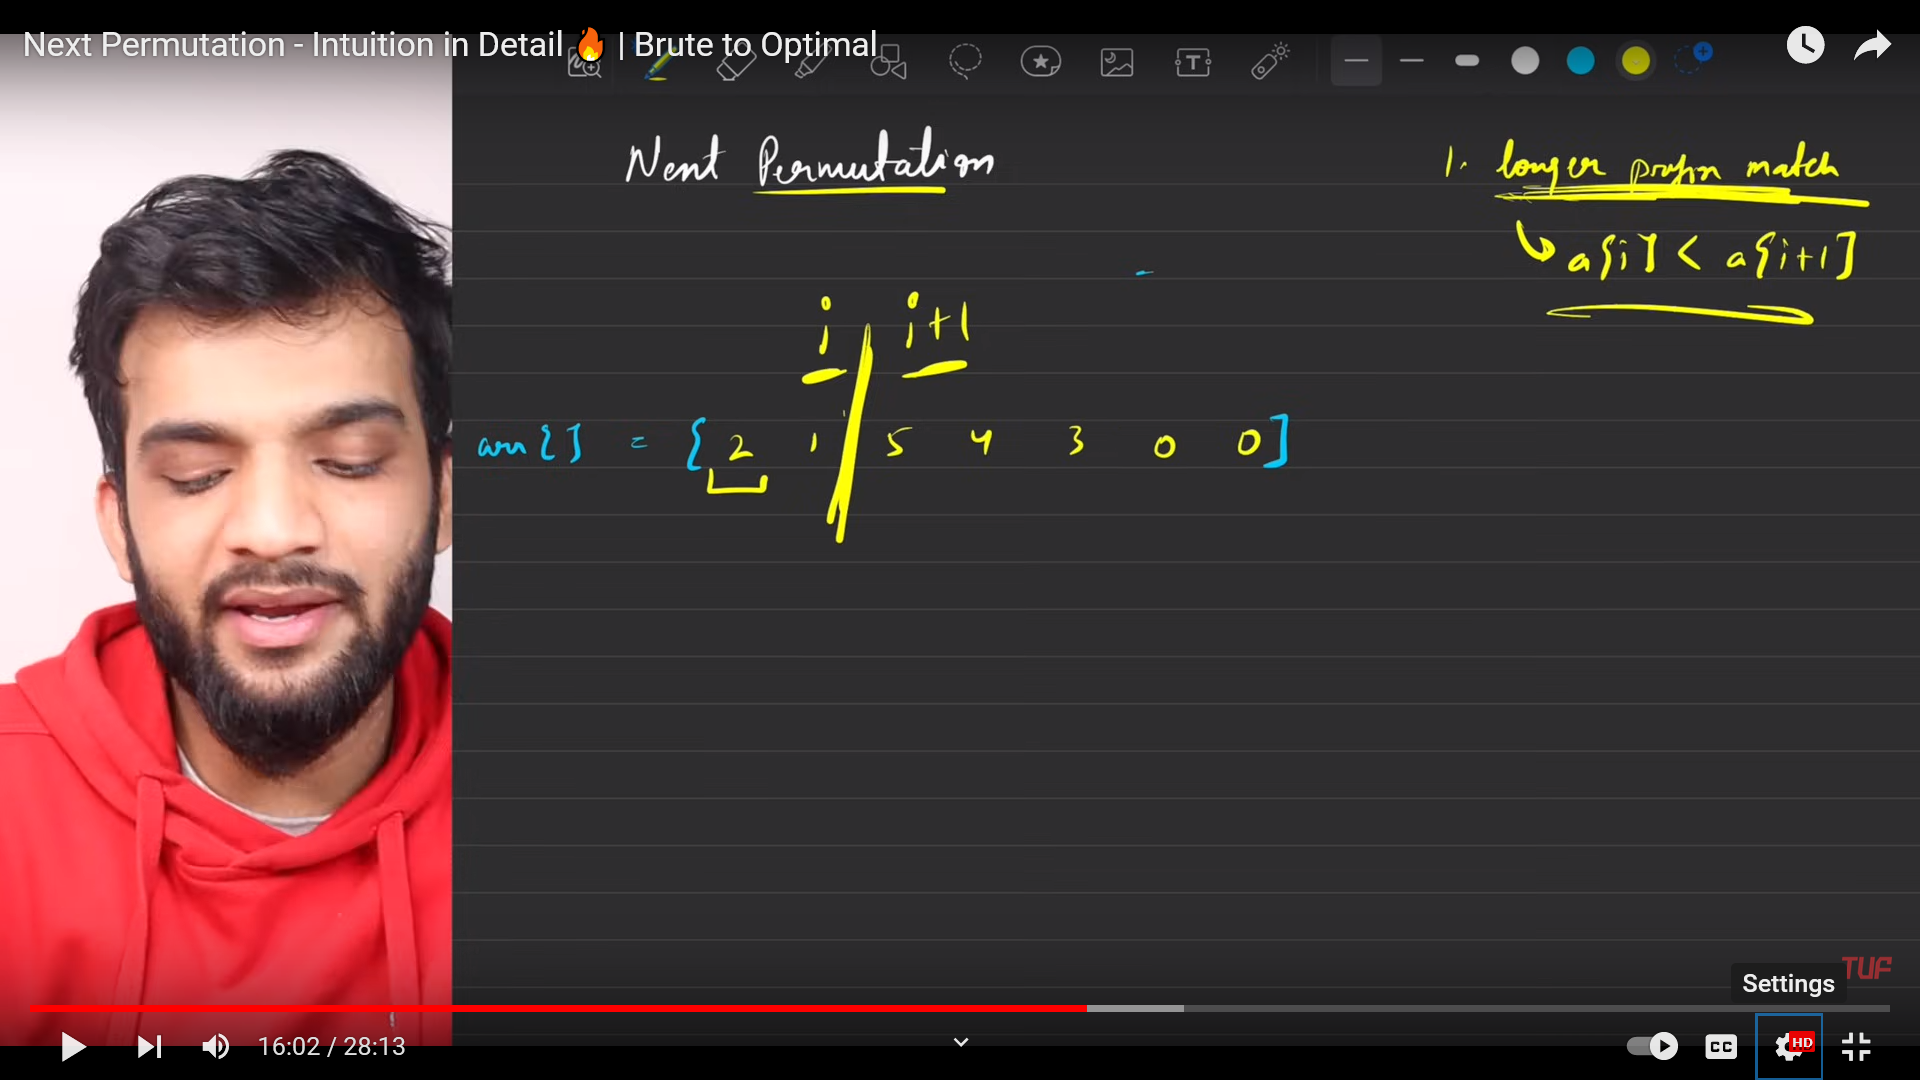 Next Permutation - Intuition in Detail 🔥 | Brute to Optimal
Next Permutation
1. longer prefix match
a[i] < a[i+1]
i i+1
arr[] = [2 1 5 4 3 0 0]
TUF
Settings
16:02 / 28:13
CC
HD